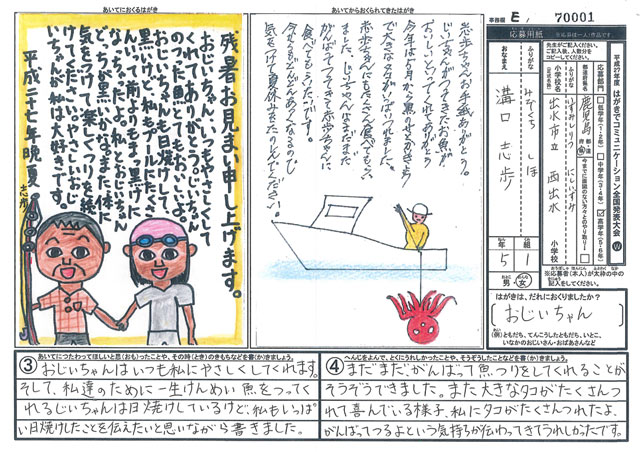 あいてにおくるはがき
残暑お見まい申し上げます。
おじいちゃん、いつもやさしくして
くれてありがとう。じいちゃん
のつった魚とてもおいしいよ。
おじいちゃんも日焼けして、
黒いけど、私もプールにたくさん
いって、前よりもまっ黒に
なっちゃったよ。私とおじいちゃん
どっちが黒いかな。また体に
気をつけて、楽しくつりを続
けてください。やさしいおじい
ちゃんが私は大好きです。
平成二十七年晩夏
志歩
あいてからおくられてきたはがき
志歩ちゃんお手紙ありがとう。
じいちゃんがつってきたお魚が
おいしいといってくれてありがとう。
今年は5月から
で大きなタコがいっぱいつれました。
歩歩ちゃんにもたくさん食べてもらい
ました。じいちゃんはまだまだ
がんばってつって志歩ちゃんに
食べてもらいたいです。
今からもどんどんあつくなるので
気をつけて夏休みをたのしんでください。
事務局欄 E, 70001
応募用紙
※応募は一人1作品です
先生がご記入後、人数分を
コピーしてください。
平成27年度 はがきでコミュニケーション全国発表大会 W
応募部門
低学年(1・2年)
中学年(3・4年)
高学年(5・6年)
都道府県名
鹿児島
今までに面識のない方々とのやり取り
ふりがな
小学校名
(正式名称)
出水市立 西出水
小学校
ふりがな
おなまえ
みぞぐち しほ
溝口 志歩
年 組
5 1
男・女
※応募者(本人)が太枠の中の
記入をしてください。
はがきは、だれにおくりましたか?
おじいちゃん
(例)ともだち、てんこうしたともだち、いとこ、
いなかのおじいさん・おばあさんなど
あいてにつたわってほしいと思(おも)ったことや、その時(とき)のきもちなどを書(か)きましょう。
③ おじいちゃんはいつも私にやさしくしてくれます。
そして、私達のために一生けんめい魚をつってく
れるじいちゃんは日焼けしているけど、私もいっぱ
い日焼けしたことを伝えたいと思いながら書きました。
へんじをよんで、とくにうれしかったことや、そうぞうしたことなどを書(か)きましょう。
④ まだまだ、がんばって魚つりをしてくれることが
そうぞうできました。また大きなタコがたくさんつ
れて喜んでいる様子、私にタコがたくさんつれたよ、
がんばってつるよという気持ちが伝わってきてうれしかったです。